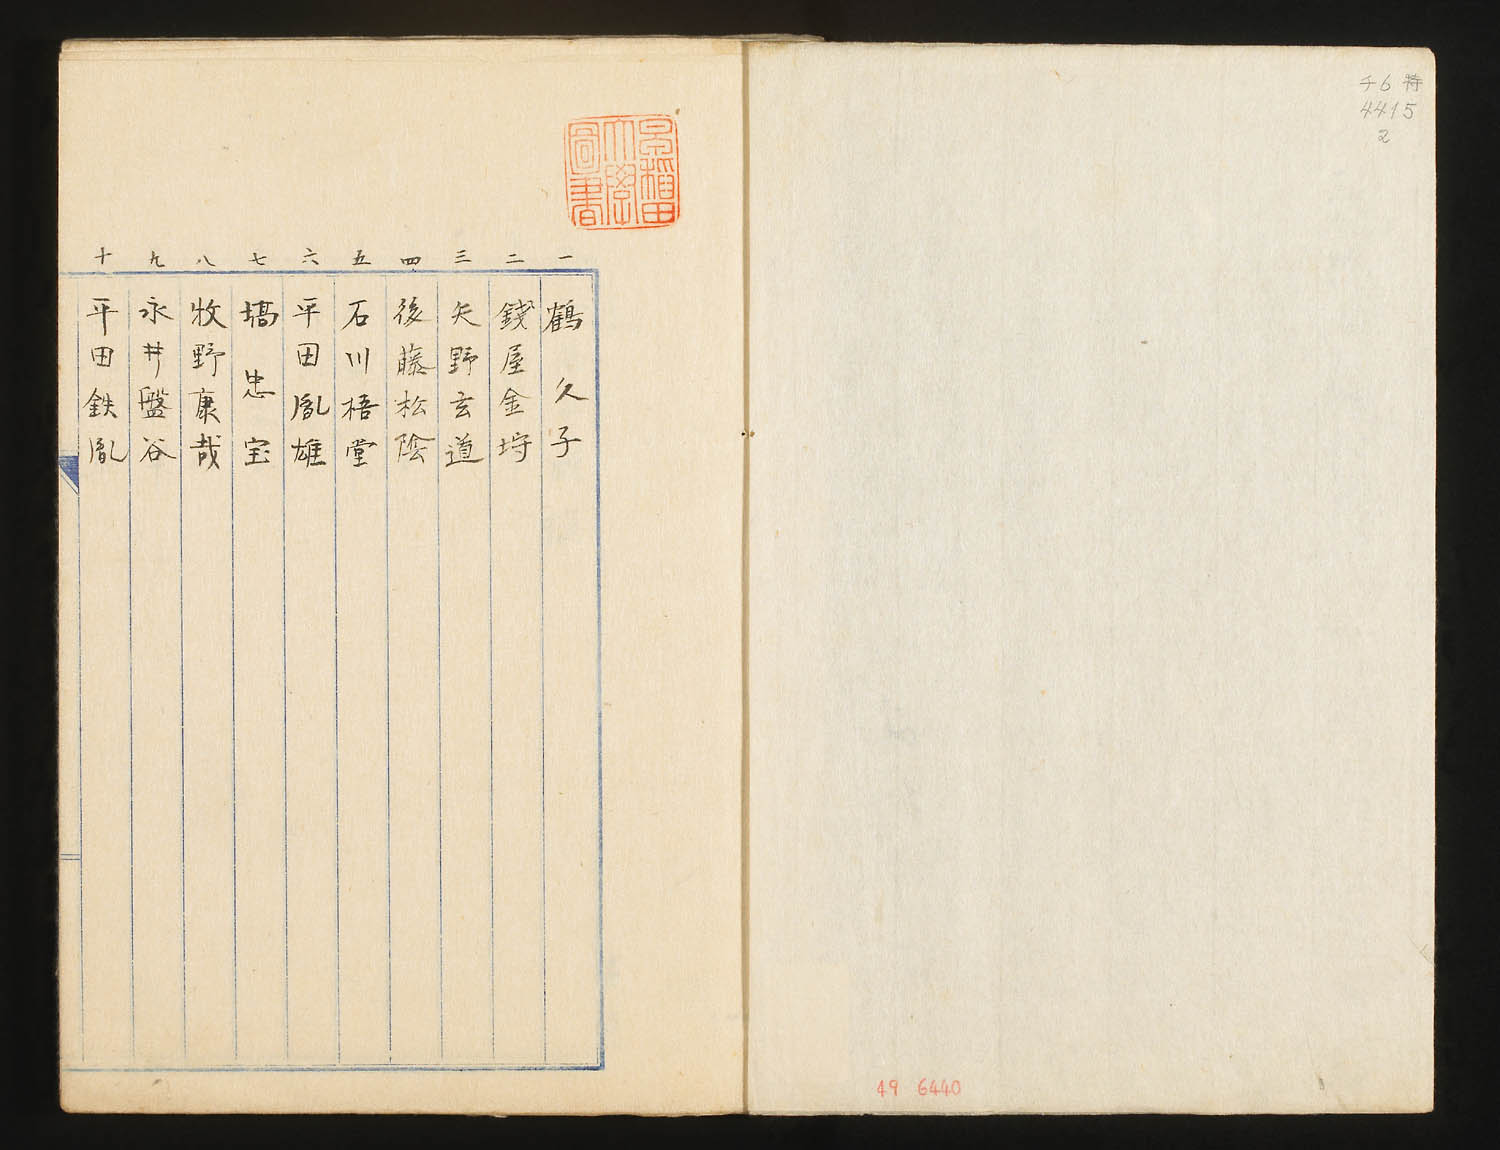 チ6 特
4415
2
49 6440
早稲田
大學
圖書
一 鶴久子
二 錢屋金埒
三 矢野玄道
四 後藤松陰
五 石川梧堂
六 平田胤雄
七 塙忠宝
八 牧野康哉
九 永井盤谷
十 平田鉄胤